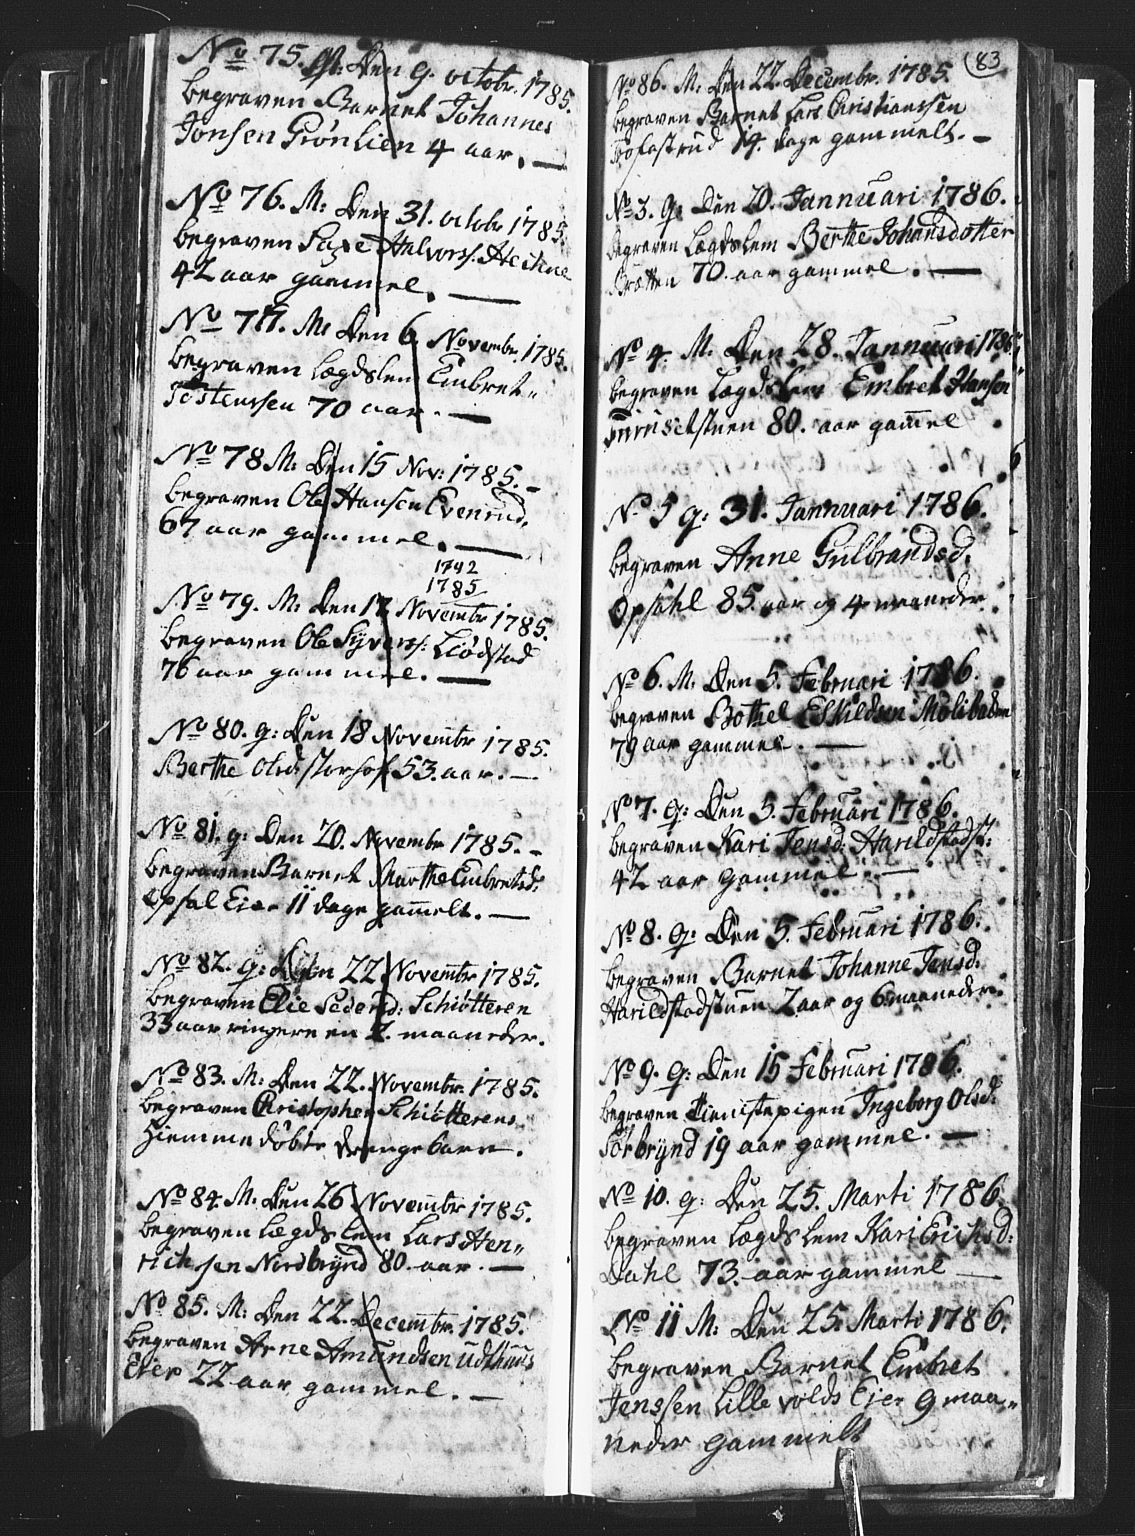 No 75. M: Den 9. octobr. 1785.
begraven Barnet Johannes
Jonsen Grönlien 4 aar. —
No 76. M: Den 31. octobr 1785.
begraven Saxe Halvors.
42 aar gammel. —
No 77. M: Den 6 Novembr. 1785.
begraven Lægdslem Embret
Jostenssen 70 aar. —
No 78 M: Den 15 Nov: 1785. —
begraven Ole Hansen Evenrud.
67 aar gammel. —
1742
1785
No 79. M. Den 17 Novembr 1785.
begraven Ole Syvers: Liödstad
76 aar gammel. —
No 80. q: Den 18 Novembr 1785.
Berthe Olsd: Storhof 53. aar. —
No 81. q: Den 20. Novembr 1785. —
begraven Barnet Marthe Embretsd:
Opsal Eier 11 dage gam̅elt. —
No 82. q: Den 22 Novembr 1785.
begraven Elie Pedersd: Schiötteren
33 aar ringere en 2. maaneder.
No 83. M: Den 22. Novembr 1785.
begraven Christopher Schiötterens
Hiemme döbte drengebarn.
No 84. M. Den 26 Novembr 1785.
begraven Lægdslem Lars Hen„
richsen Nordbrÿnd 80. aar. —
No 85. M: Den 22. Decembr. 1785.
begraven Arne Amundsen Udthuus
Eier 22 aar gammel. —
83
No 86. M. Den 22. Decembr. 1785.
begraven Barnet Lars Christiansen
14. dage gammelt. —
No 3. q: Den 20. Jannuari 1786.
begraven Lægdslem Berthe Johansdotter
Bråtten 70. aar gammel. —
No 4. M: Den 28. Jannuari 1786.
begraven Lægdslem Embret Hansen
80. aar gam̅el
No 5 q: 31. Jannuari 1786.
begraven Anne Gulbrandsd.
Opsahl 85. aar og 4 maaneder.
No 6. M. Den 5. Februari 1786.
begraven Bothel Eskildsen Molibakken
79 aar gammel. —
No 7. q: Den 5. Februari 1786.
begraven Kari Jensd: Harildstadst:
42 aar gammel. —
No 8. q: Den 5. Februari 1786.
begraven Barnet Johanne Jensd:
Harildstadstuen 2 aar og 6 maaneder.
No 9. q: Den 15 Februari 1786.
begraven tienistepigen Ingeborg Olsd:
Sörbrÿnd 19 aar gammel. —
No 10. q: Den 25. Marti 1786
begraven Lægdslem Kari Erichsd:
Dahl 73. aar gammel —
No 11 M: Den 25. Marti 1786.
begraven Barnet Embret
Jenssen Lillevolds Ejer 9 maa„
neder gammelt